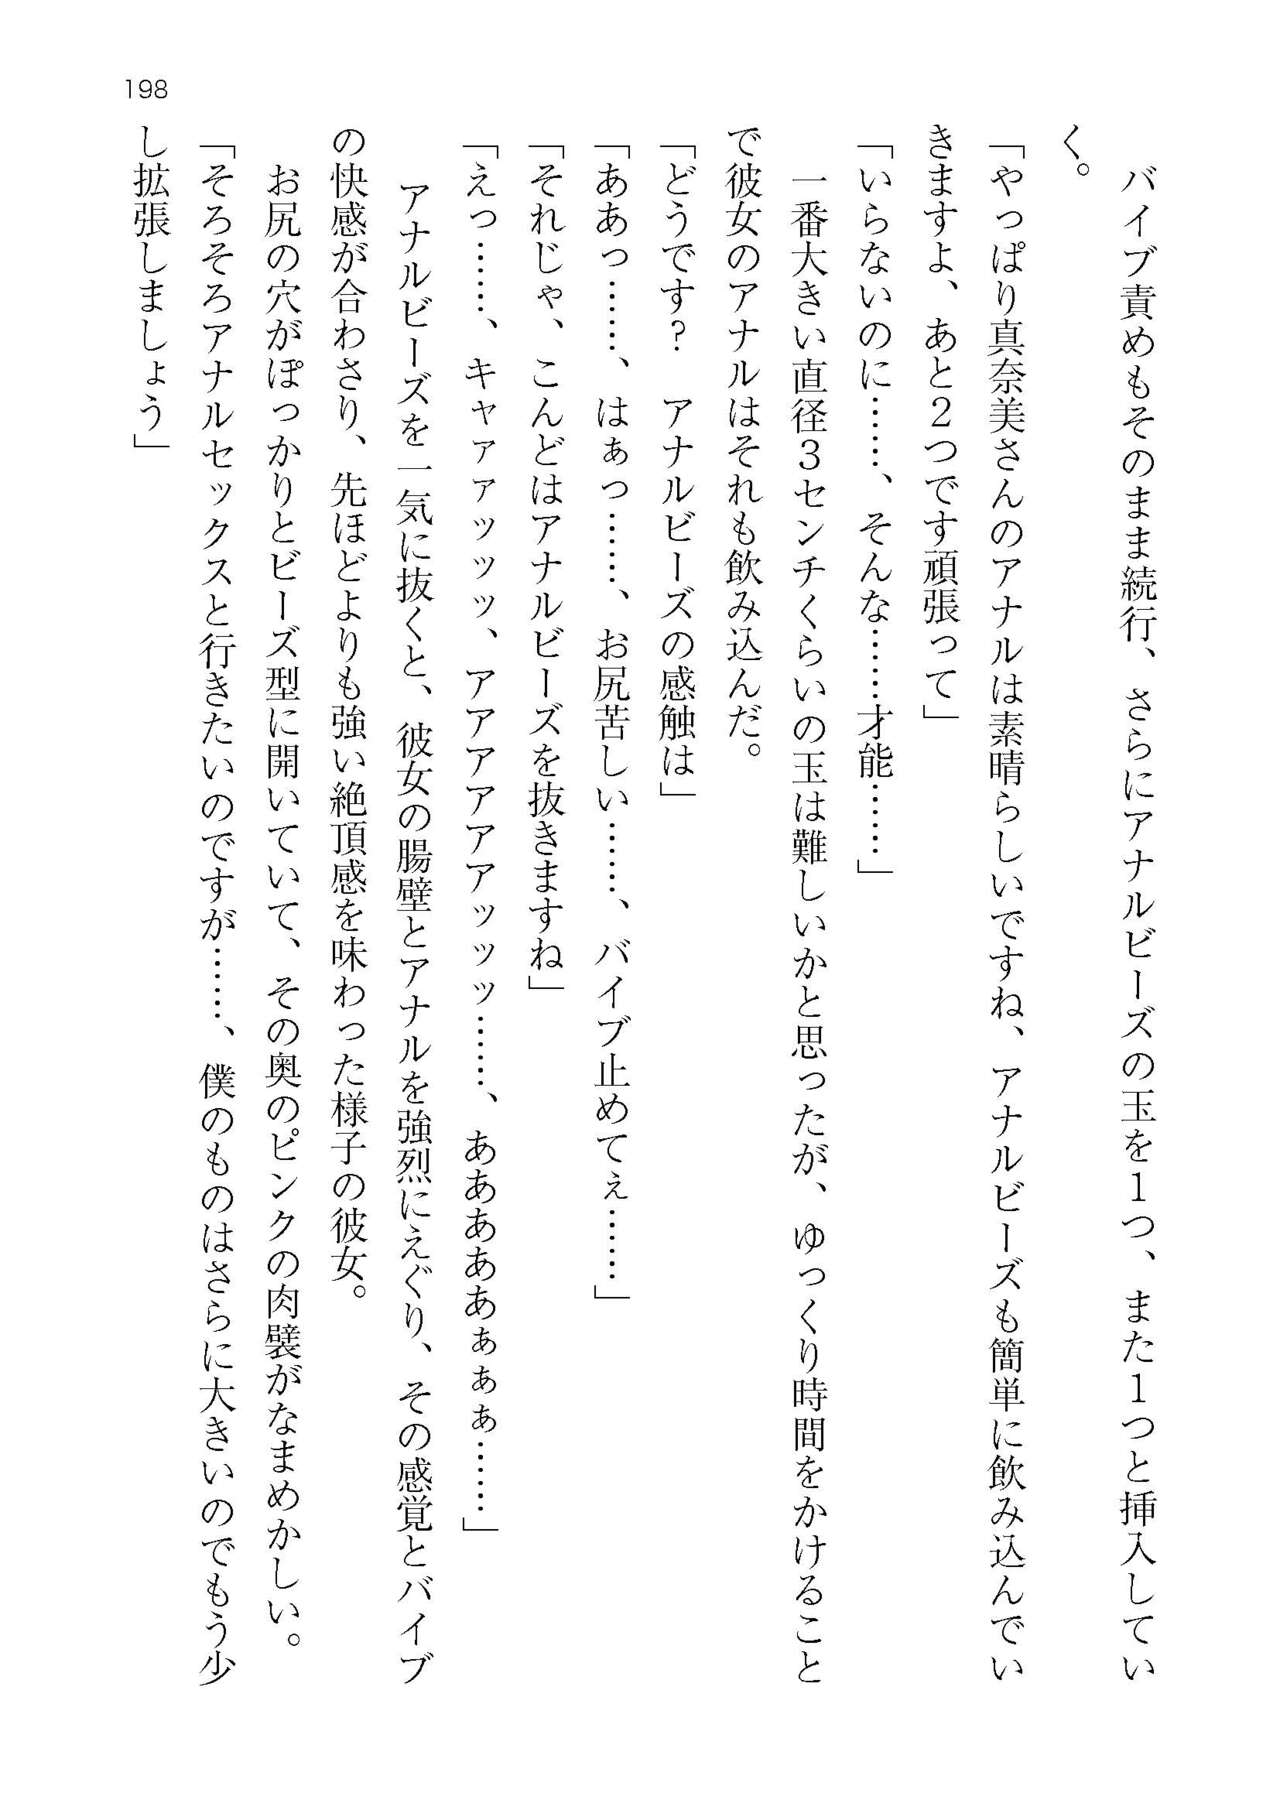 198
　バイブ責めもそのまま続行、さらにアナルビーズの玉を１つ、また１つと挿入してい
く。
「やっぱり真奈美さんのアナルは素晴らしいですね、アナルビーズも簡単に飲み込んでい
きますよ、あと２つです頑張って」
「いらないのに……、そんな……才能……」
　一番大きい直径３センチくらいの玉は難しいかと思ったが、ゆっくり時間をかけること
で彼女のアナルはそれも飲み込んだ。
「どうです？　アナルビーズの感触は」
「ああっ……、はぁっ……、お尻苦しい……、バイブ止めてぇ……」
「それじゃ、こんどはアナルビーズを抜きますね」
「えっ……、キャァァッッッ、アアアアアアッッッ……、あああああぁぁぁ……」
　アナルビーズを一気に抜くと、彼女の腸壁とアナルを強烈にえぐり、その感覚とバイブ
の快感が合わさり、先ほどよりも強い絶頂感を味わった様子の彼女。
　お尻の穴がぽっかりとビーズ型に開いていて、その奥のピンクの肉襞がなまめかしい。
「そろそろアナルセックスと行きたいのですが……、僕のものはさらに大きいのでもう少
し拡張しましょう」